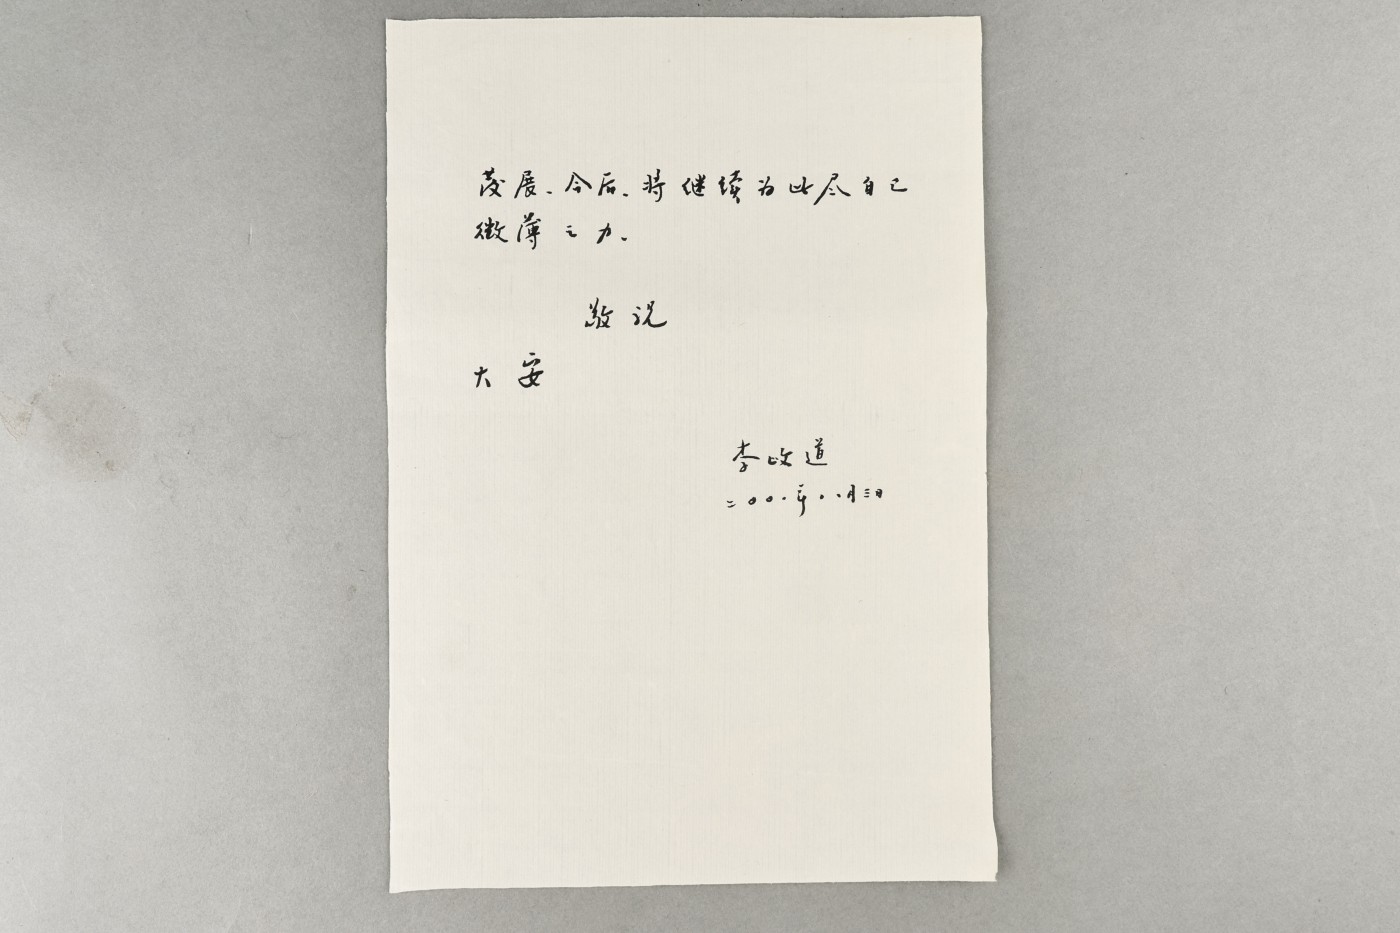 发展、今后、将继续为此尽自己
微薄之力、
敬祝
大安
李政道
二〇〇〇年八月三日